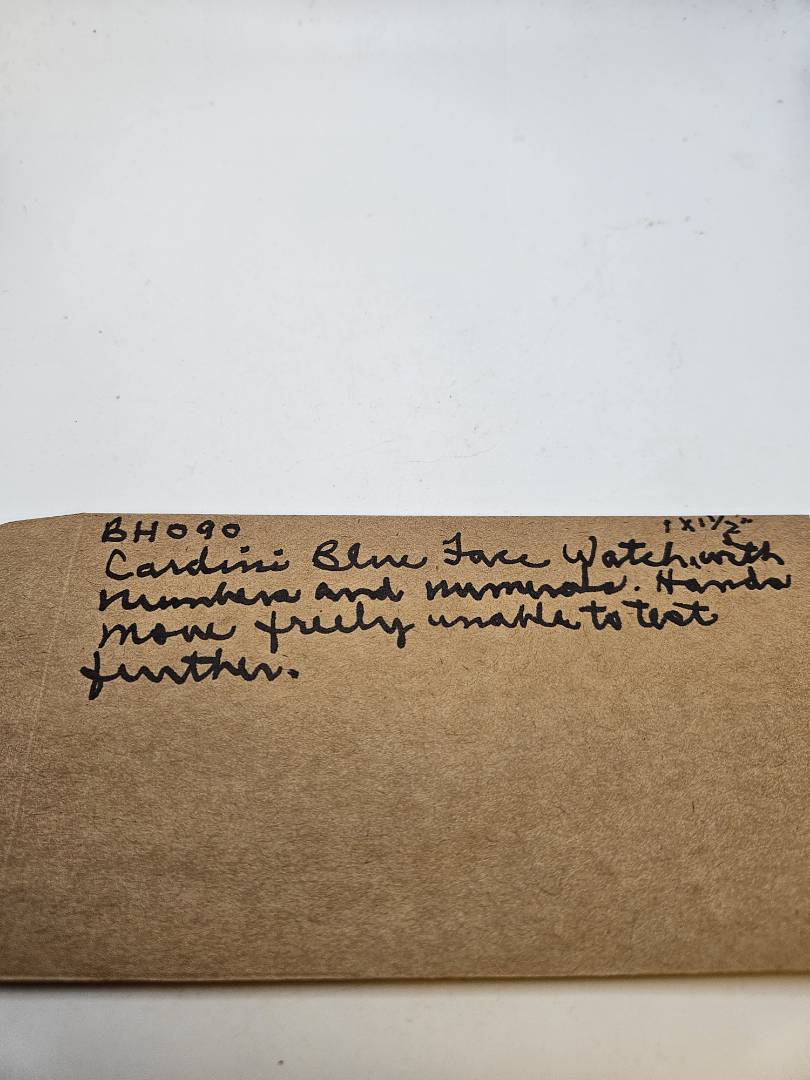 BH090 1X1½"
Cardini Blue Face Watch with
numbers and numerals. Hands
move freely unable to test
further.